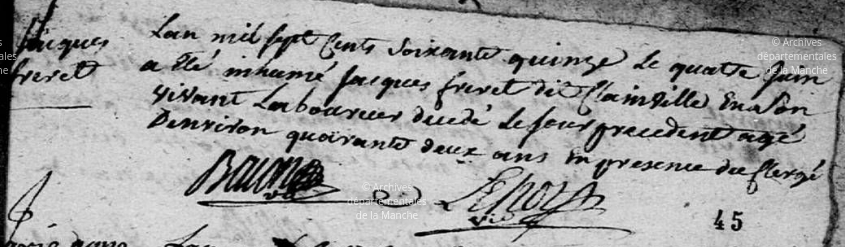 Jacques
freret
Lan mil sept Cents Soixante quinze Le quatre juin
a eté inhumé Jacques freret dit Clainville En son
vivant Laboureur decedé Le jour precedent agé
Denviron quarante deux ans En presence du Clergé
45
© Archives
départementales
de la Manche
© Archives
départementales
de la Manche